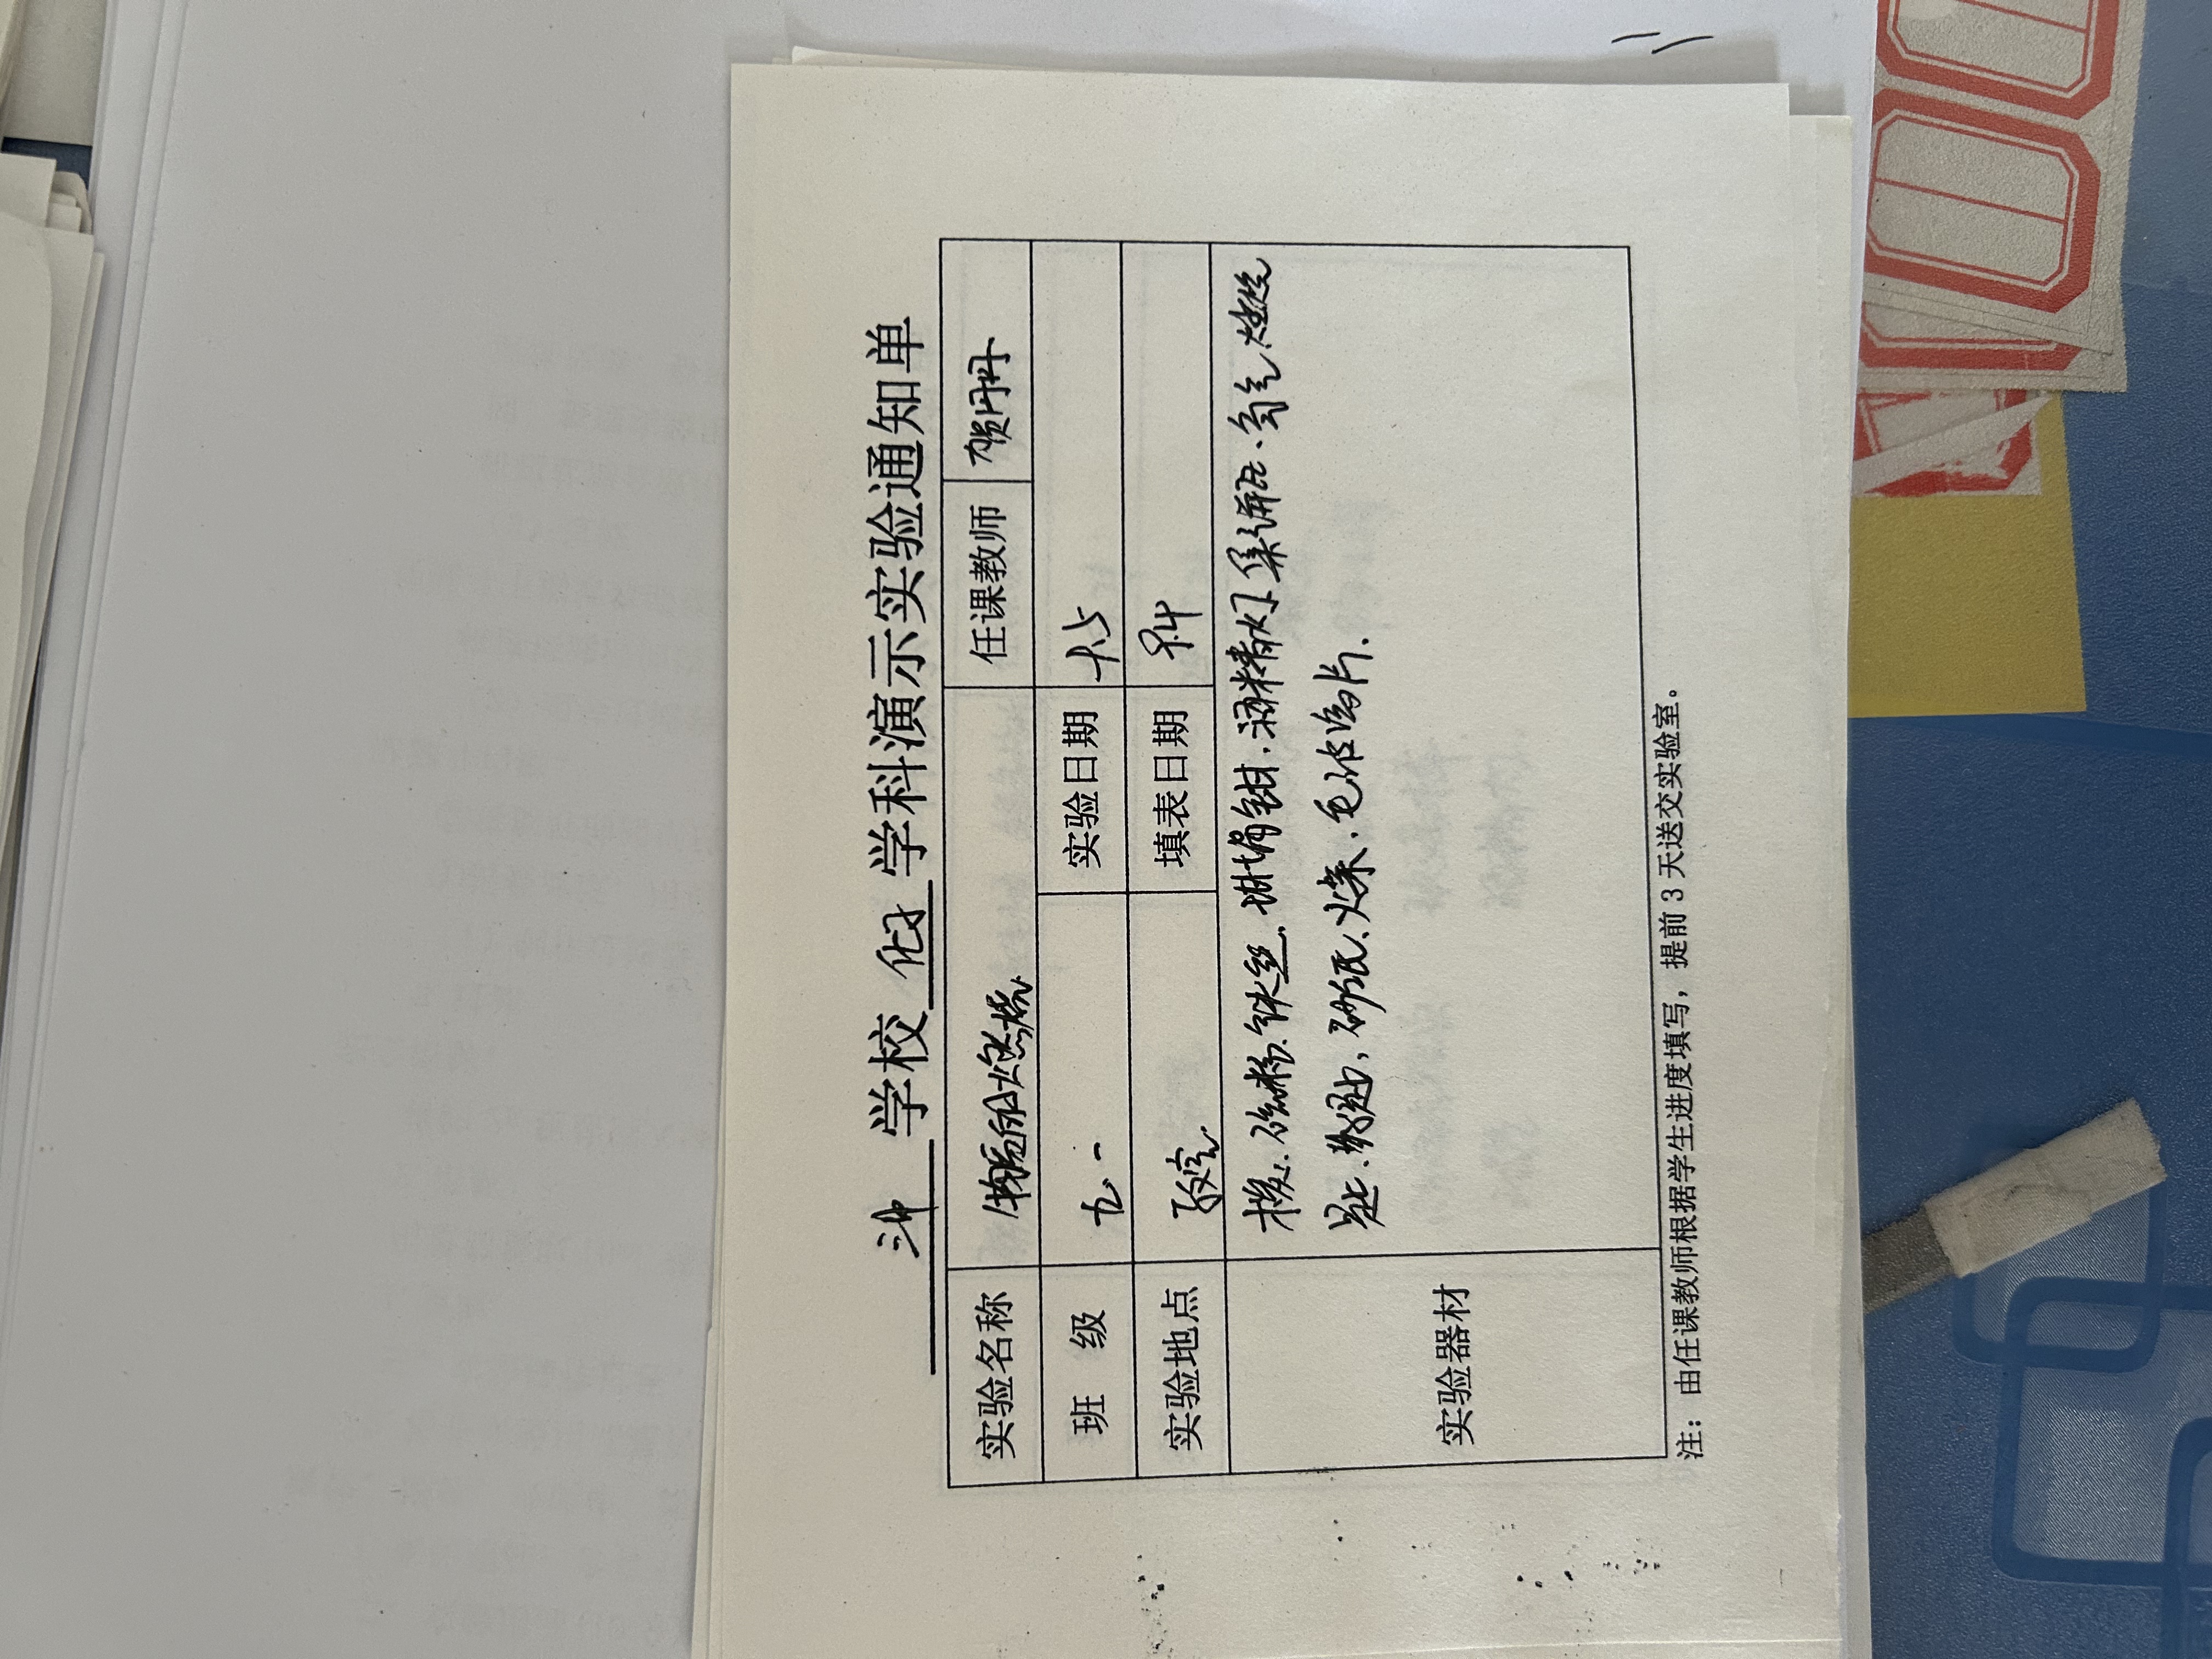 学校 化学 学科演示实验通知单
实验名称 物质的燃烧 任课教师 贺丹丹
班 级 九一 实验日期 9.15
实验地点 教室 填表日期 9.14
实验器材 硫粉、铁丝、坩埚钳、酒精灯、集气瓶、氧气、燃烧
匙、砂纸、火柴、毛玻璃片.
注：由任课教师根据学生进度填写，提前 3 天送交实验室。